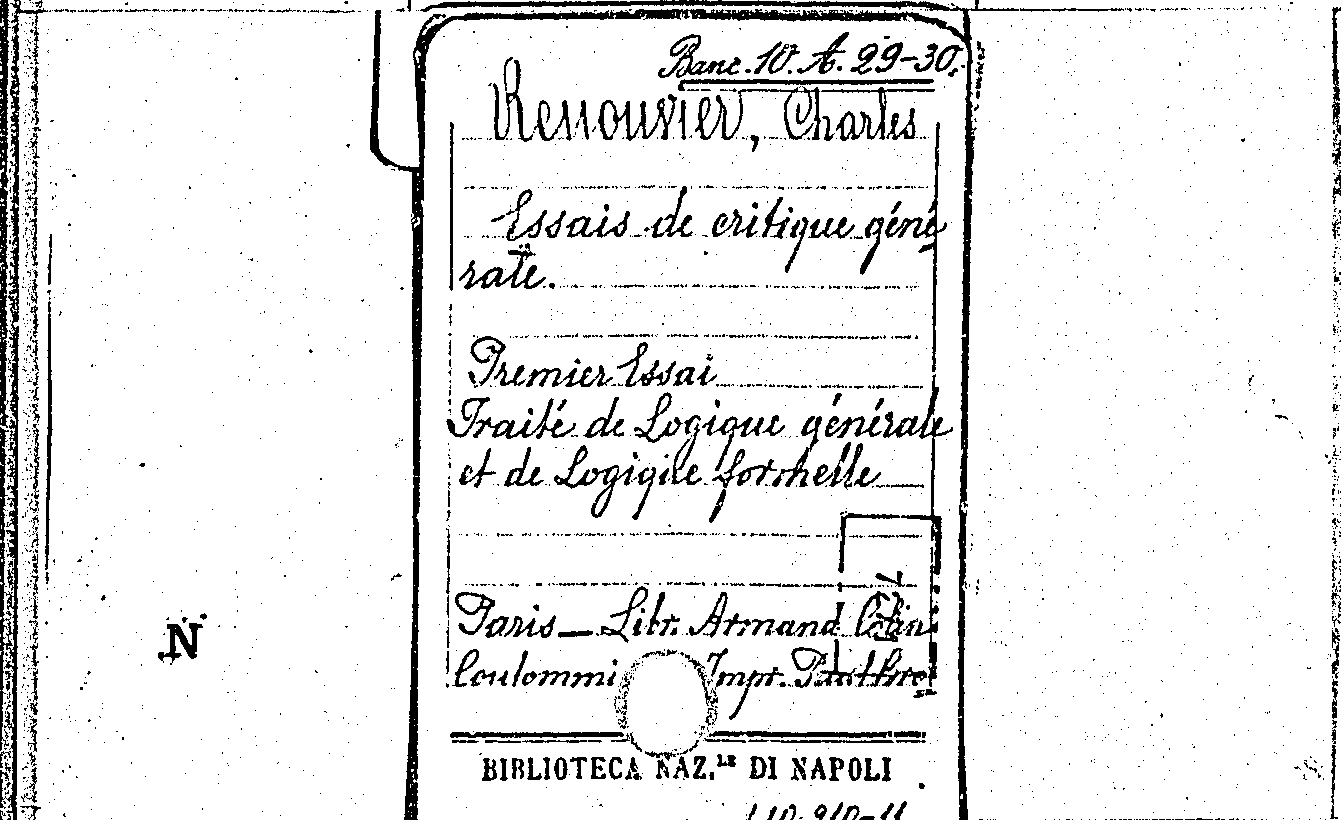 Banc. 10. A. 29-30.
Renouvier, Charles
Essais de critique géné
rale.
Premier Essai
Traité de Logique générale
et de Logique formelle
Paris — Libr. Armand Colin
Coulommi Impr.
N
BIBLIOTECA NAZ.LE DI NAPOLI